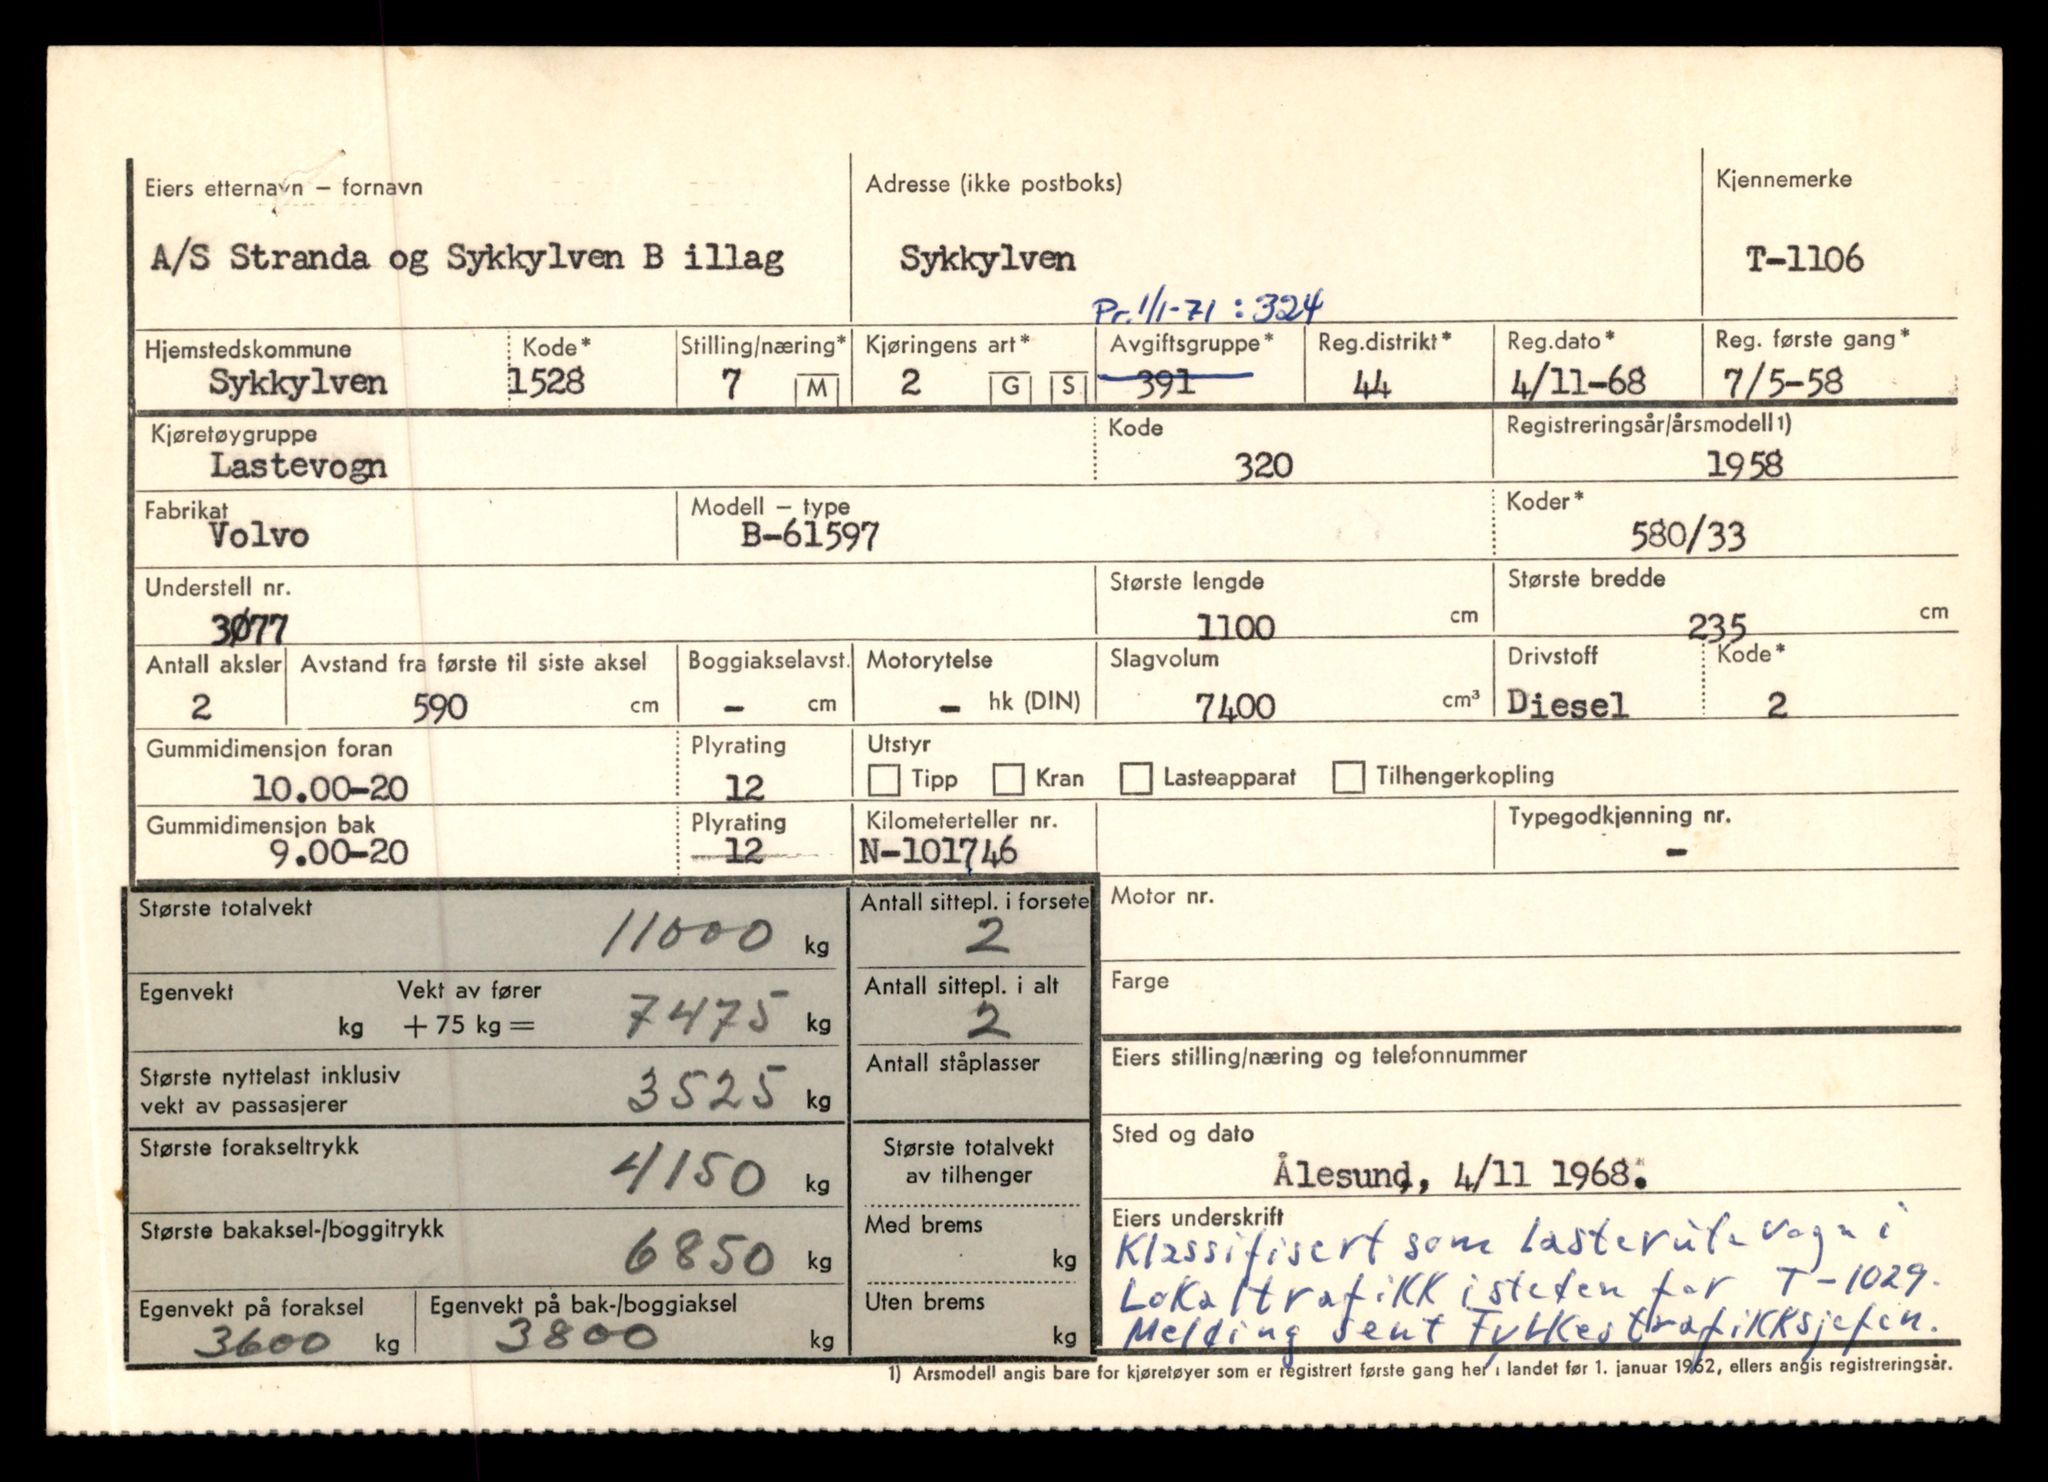 Eiers etternavn – fornavn Adresse (ikke postboks) Kjennemerke
A/S Stranda og Sykkylven B illag Sykkylven T-1106
Pr. 1/1-71 : 324
Hjemstedskommune Kode* Stilling/næring* Kjøringens art* Avgiftsgruppe* Reg.distrikt* Reg.dato* Reg. første gang*
Sykkylven 1528 7 M 2 G S 391 44 4/11-68 7/5-58
Kjøretøygruppe Kode Registreringsår/årsmodell1)
Lastevogn 320 1958
Fabrikat Modell – type Koder*
Volvo B-61597 580/33
Understell nr. Største lengde Største bredde
3077 1100 cm 235 cm
Antall aksler Avstand fra første til siste aksel Boggiakselavst. Motorytelse Slagvolum Drivstoff Kode*
2 590 cm – cm – hk (DIN) 7400 cm³ Diesel 2
Gummidimensjon foran Plyrating Utstyr
10.00-20 12 Tipp Kran Lasteapparat Tilhengerkopling
Gummidimensjon bak Plyrating Kilometerteller nr. Typegodkjenning nr.
9.00-20 12 N-101746 –
Største totalvekt 11000 kg Antall sittepl. i forsete 2 Motor nr.
Egenvekt kg Vekt av fører + 75 kg = 7475 kg Antall sittepl. i alt 2 Farge
Største nyttelast inklusiv vekt av passasjerer 3525 kg Antall ståplasser Eiers stilling/næring og telefonnummer
Største forakseltrykk 4150 kg Største totalvekt av tilhenger Sted og dato
Ålesund, 4/11 1968.
Største bakaksel-/boggitrykk 6850 kg Med brems kg Eiers underskrift
Klassifisert som Lasterute vogn i
Lokaltrafikk isteden for T-1029.
Melding sent Fylkestrafikksjefen.
Egenvekt på foraksel 3600 kg Egenvekt på bak-/boggiaksel 3800 kg Uten brems kg
1) Årsmodell angis bare for kjøretøyer som er registrert første gang her i landet før 1. januar 1962, ellers angis registreringsår.